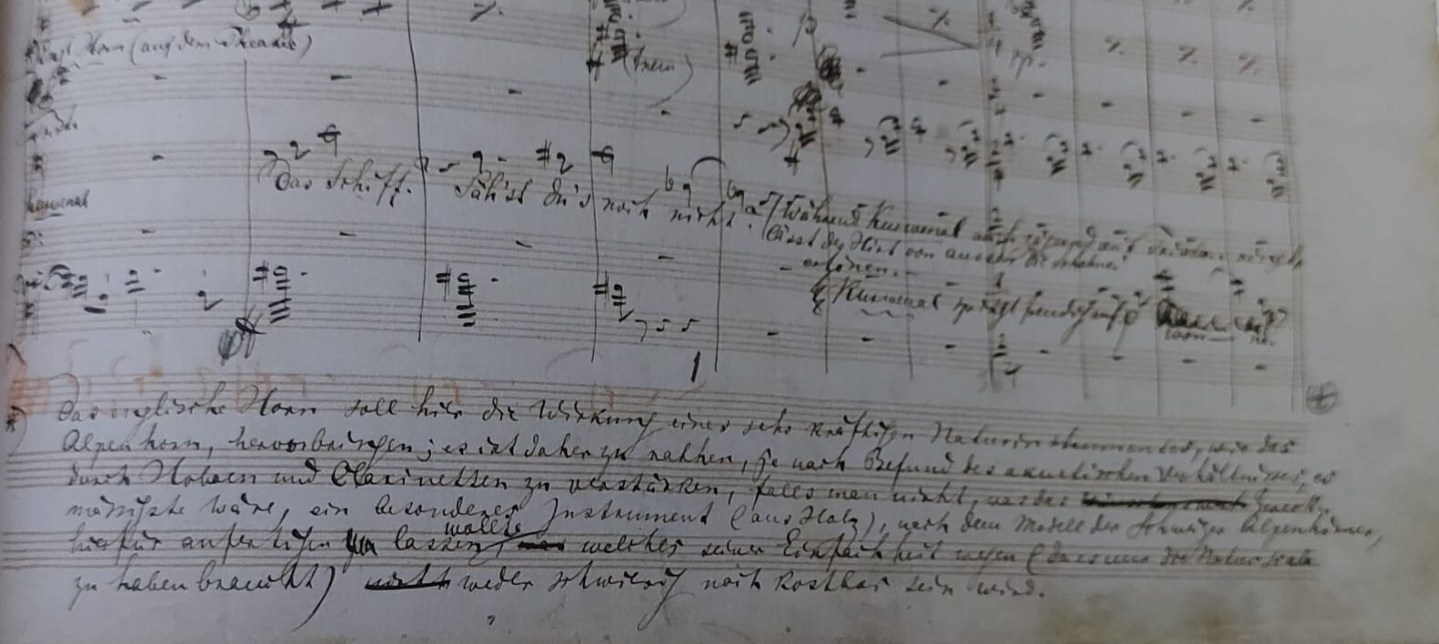 Engl. Horn (auf dem Theater)
(treu)
pp.
Kurwenal
Das Schiff? Säh'st du's noch nicht?
(Während Kurwenal noch zögernd mit Tristan ringt,
lässt der Hirt von aussen die Schalmei
ertönen.
(Kurwenal springt freudig auf
1
Das englische Horn soll hier die Wirkung eines sehr kräftigen Naturinstrumentes, wie das
Alpenhorn, hervorbringen; es ist daher zu rathen, je nach Befund des akustischen Verhältnisses, es
durch Hoboen und Clarinetten zu verstärken, falls man nicht, was das Zweck-
mässigste wäre, ein besonderes Instrument (aus Holz), nach dem Modell der Schweizer Alpenhörner,
hierfür anfertigen lassen wollte welches seiner Einfachheit wegen (da es nur die Naturscala
zu haben braucht) weder schwierig noch kostbar sein wird.